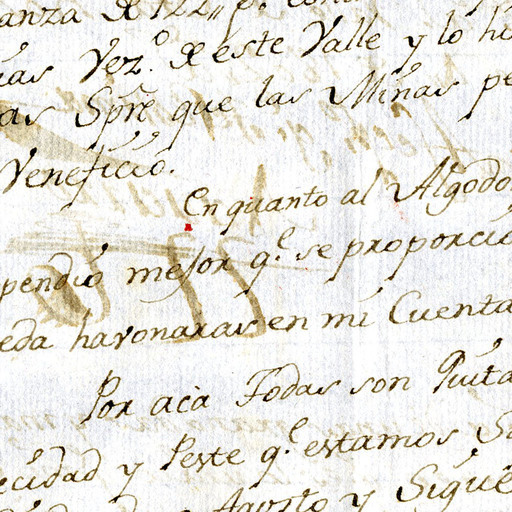 anza de 122,, p.s con
ias Vez.o de este Valle y lo hi
as Spre que las Minas pe
Veneficio.
En quanto al Algodo
pendio mejor q.e se proporcio
eda havonaras en mi Cuenta
Por acà Todas son Quita
ecidad y Peste q.e estamos S
Agosto y Sigue